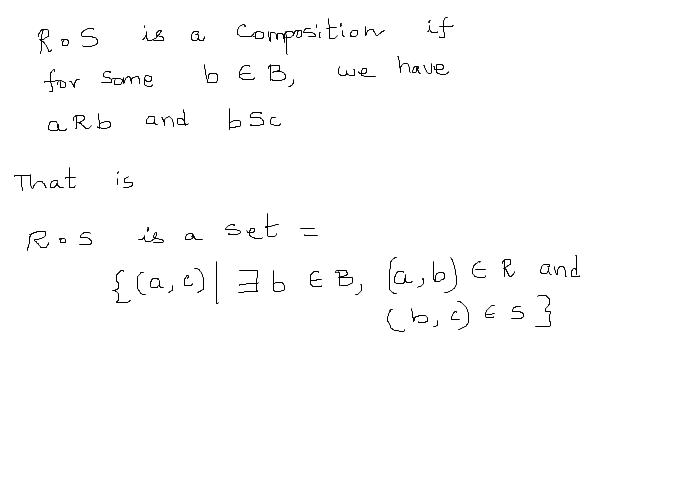 R∘S is a composition if
for some b ∈ B, we have
aRb and bSc
That is
R∘S is a set =
{(a,c)| ∃ b ∈ B, (a,b) ∈ R and
(b,c) ∈ S}